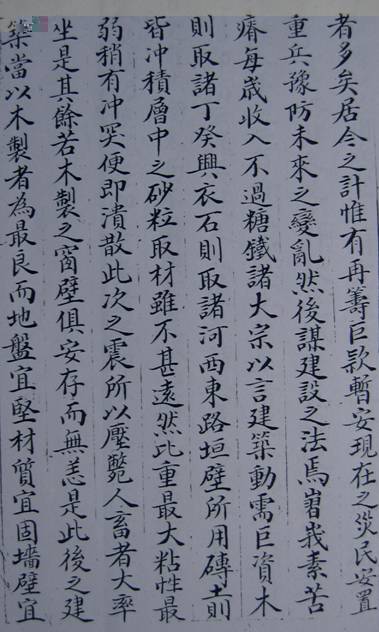 者多矣居今之計惟有再籌巨款暫安現在之災民安置
重兵豫防未來之變亂然後謀建設之法焉嵩峩素苦
瘠每歲收入不過糖鐵諸大宗以言建築動需巨資木
則取諸丁癸興衣石則取諸河西東路垣壁所用磚土則
皆冲積層中之砂粒取材雖不甚遠然比重最大粘性最
弱稍有冲突便即潰散此次之震所以壓斃人畜者大率
坐是其餘若木製之窗壁俱安存而無恙是此後之建
築當以木製者為最良而地盤宜堅材質宜固墻壁宜